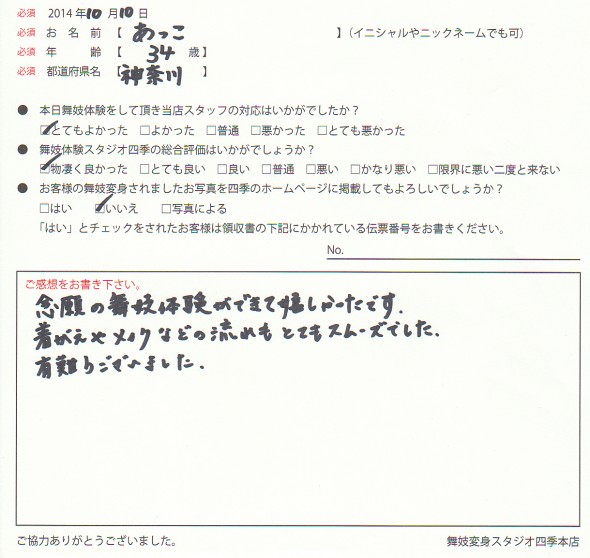 必須 2014年10月10日
必須 お名前【あっこ】(イニシャルやニックネームでも可)
必須 年齢【34歳】
必須 都道府県名【神奈川】
● 本日舞妓体験をして頂き当店スタッフの対応はいかがでしたか？
☑とてもよかった □よかった □普通 □悪かった □とても悪かった
● 舞妓体験スタジオ四季の総合評価はいかがでしょうか？
☑物凄く良かった □とても良い □良い □普通 □悪い □かなり悪い □限界に悪い二度と来ない
● お客様の舞妓変身されましたお写真を四季のホームページに掲載してもよろしいでしょうか？
□はい ☑いいえ □写真による
「はい」とチェックをされたお客様は領収書の下記にかかれている伝票番号をお書きください。
No.
ご感想をお書き下さい。
念願の舞妓体験ができて嬉しかったです.
着がえやメイクなどの流れもとてもスムーズでした.
有難うございました.
ご協力ありがとうございました。
舞妓変身スタジオ四季本店